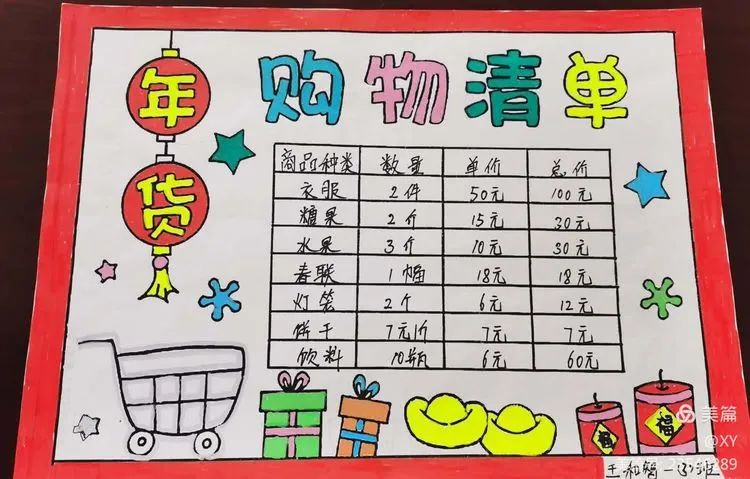 年货
购物清单
商品种类 数量 单价 总价
衣服 2件 50元 100元
糖果 2斤 15元 30元
水果 3斤 10元 30元
春联 1幅 18元 18元
灯笼 2个 6元 12元
饼干 7元1斤 7元 7元
饮料 10瓶 6元 60元
福
福
美篇
@XY